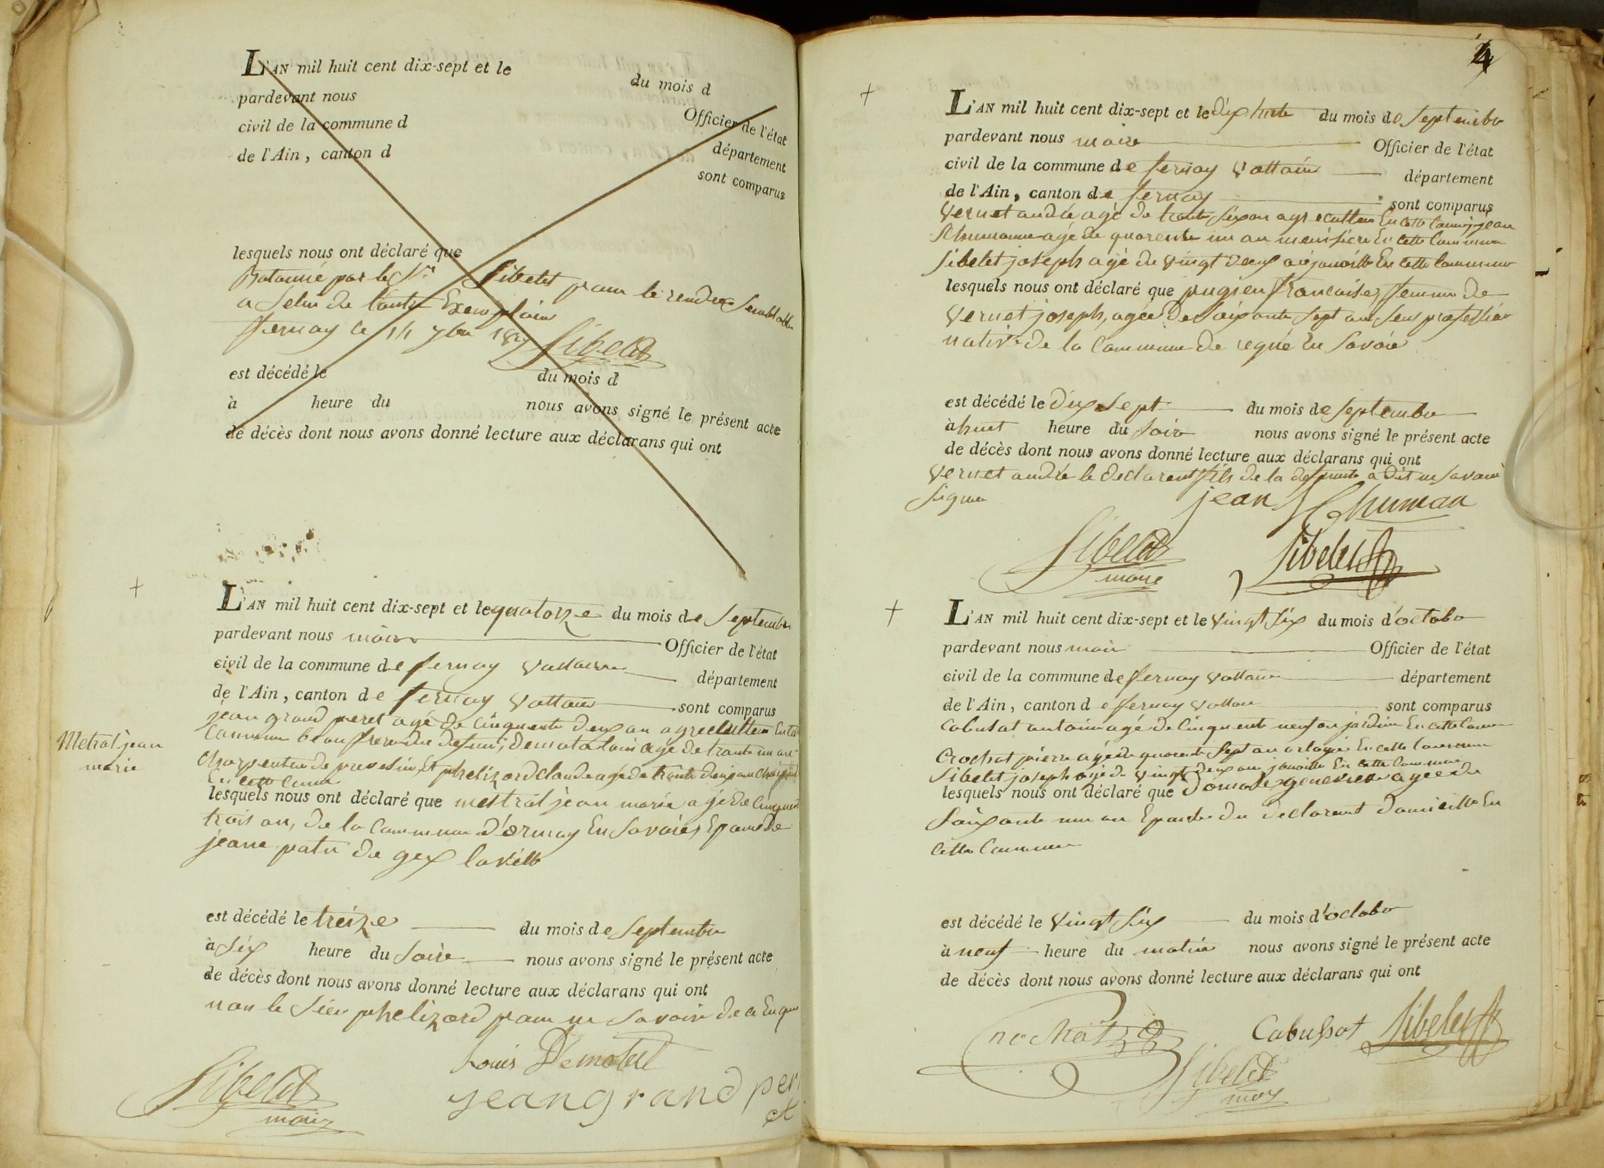 L'AN mil huit cent dix-sept et le du mois d
pardevant nous Officier de l'état
civil de la commune d département
de l'Ain, canton d sont comparus
lesquels nous ont déclaré que
par le Sr Sibelet pour le rendre Semblable
a Selui de lautre Exemplaire
fernay ce 14 7bre 1817 Sibelet
est décédé le du mois d
à heure du nous avons signé le présent acte
de décès dont nous avons donné lecture aux déclarans qui ont
L'AN mil huit cent dix-sept et le quatorze du mois de Septembre
pardevant nous maire Officier de l'état
civil de la commune de fernay Voltaire département
de l'Ain, canton de fernay Voltaire sont comparus
jean grand peret agé de Cinquente deux an agreculteur En Cette
Commune beau frere du defunt, Demotat Louis agé de trante un an
Charpentier de prevesin, Et phelizard claude agé de trente deux an
En cette Commune
Metral jean
marie
lesquels nous ont déclaré que mestral jean marie agé de Cinquente
trois an, de la Commune d'ornay En Savoies Epoux de
jeane patu de gex la ville
est décédé le treize du mois de Septembre
à Six heure du Soire nous avons signé le présent acte
de décès dont nous avons donné lecture aux déclarans qui ont
non le Sieur phelizard pour ne Savoir de ce Enquis
Louis Demotat
Sibelet
maire
jean grand per
et
4
L'AN mil huit cent dix-sept et le dix huite du mois de Septembre
pardevant nous maire Officier de l'état
civil de la commune de fernay Voltaire département
de l'Ain, canton de fernay sont comparus
Vernet andré agé de trante Six an agreculteur En Cette Commune jean
Schumanne agé de quarente un an menisiere En cette Commune
Sibelet joseph agé de vingt deux an jouaille En Cette Commune
lesquels nous ont déclaré que pugien francaise, femme de
Vernet joseph, agée de Soixante Sept an Sens profession
native de la Commune de regné En Savoie
est décédé le dix Sept du mois de Septembre
à huet heure du Soire nous avons signé le présent acte
de décès dont nous avons donné lecture aux déclarans qui ont
Vernet andré le declarent fils de la defunte a dit ne Savoir
Signer jean Schuman
Sibelet Sibelet
maire
L'AN mil huit cent dix-sept et le Vingt Six du mois d'octobre
pardevant nous maire Officier de l'état
civil de la commune de fernay Voltaire département
de l'Ain, canton de fernay Voltaire sont comparus
Cabusat antoine agé de Cinquente neuf an jardinier En cette Commune
Crochat pierre agé de quarente Sept an orlogé En Cette Commune
Sibelet joseph agé de Vingt deux an jouaille En Cette Commune
lesquels nous ont déclaré que genevieve agée de
Soixante un an Epouse du declarent domicillé En
Cette Commune
est décédé le Vingt Six du mois d'octobre
à neuf heure du matin nous avons signé le présent acte
de décès dont nous avons donné lecture aux déclarans qui ont
Cabussat Sibelet
Sibelet
maire